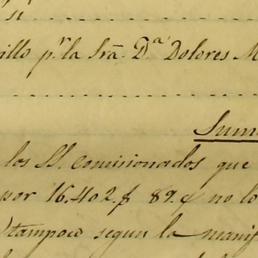 si
illo p.r la Sra. D.a Dolores M
Suma
los SS. comisionados que
por 16.402 $ 89 ¢ no lo
tampoco segun la manif